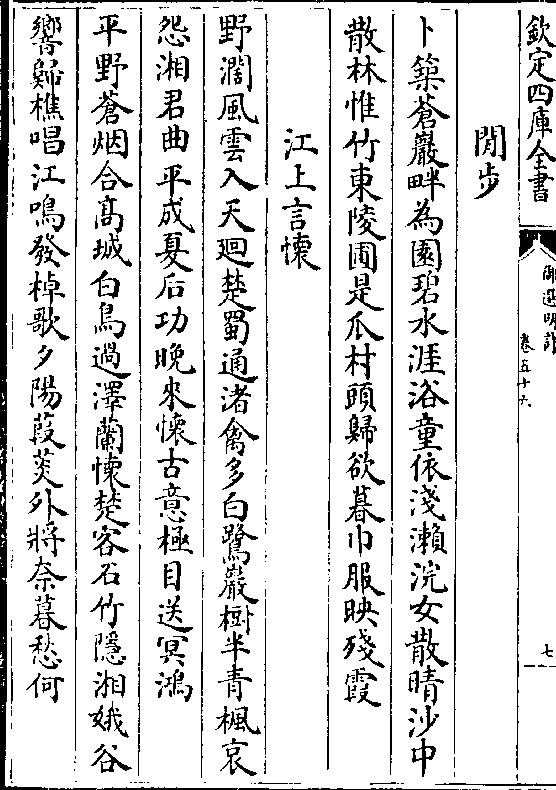 欽定四庫全書
御選明詩
卷五十六
七
閒步
卜築蒼巖畔為園碧水涯浴童依淺瀨浣女散晴沙中
散林惟竹東陵圃是瓜村頭歸欲暮巾服映殘霞
江上言懷
野濶風雲入天廻楚蜀通渚禽多白鷺巖樹半青楓哀
怨湘君曲平成夏后功晚來懷古意極目送冥鴻
平野蒼烟合髙城白鳥過澤蘭懷楚客石竹隱湘娥谷
響歸樵唱江鳴發棹歌夕陽葭菼外將奈暮愁何